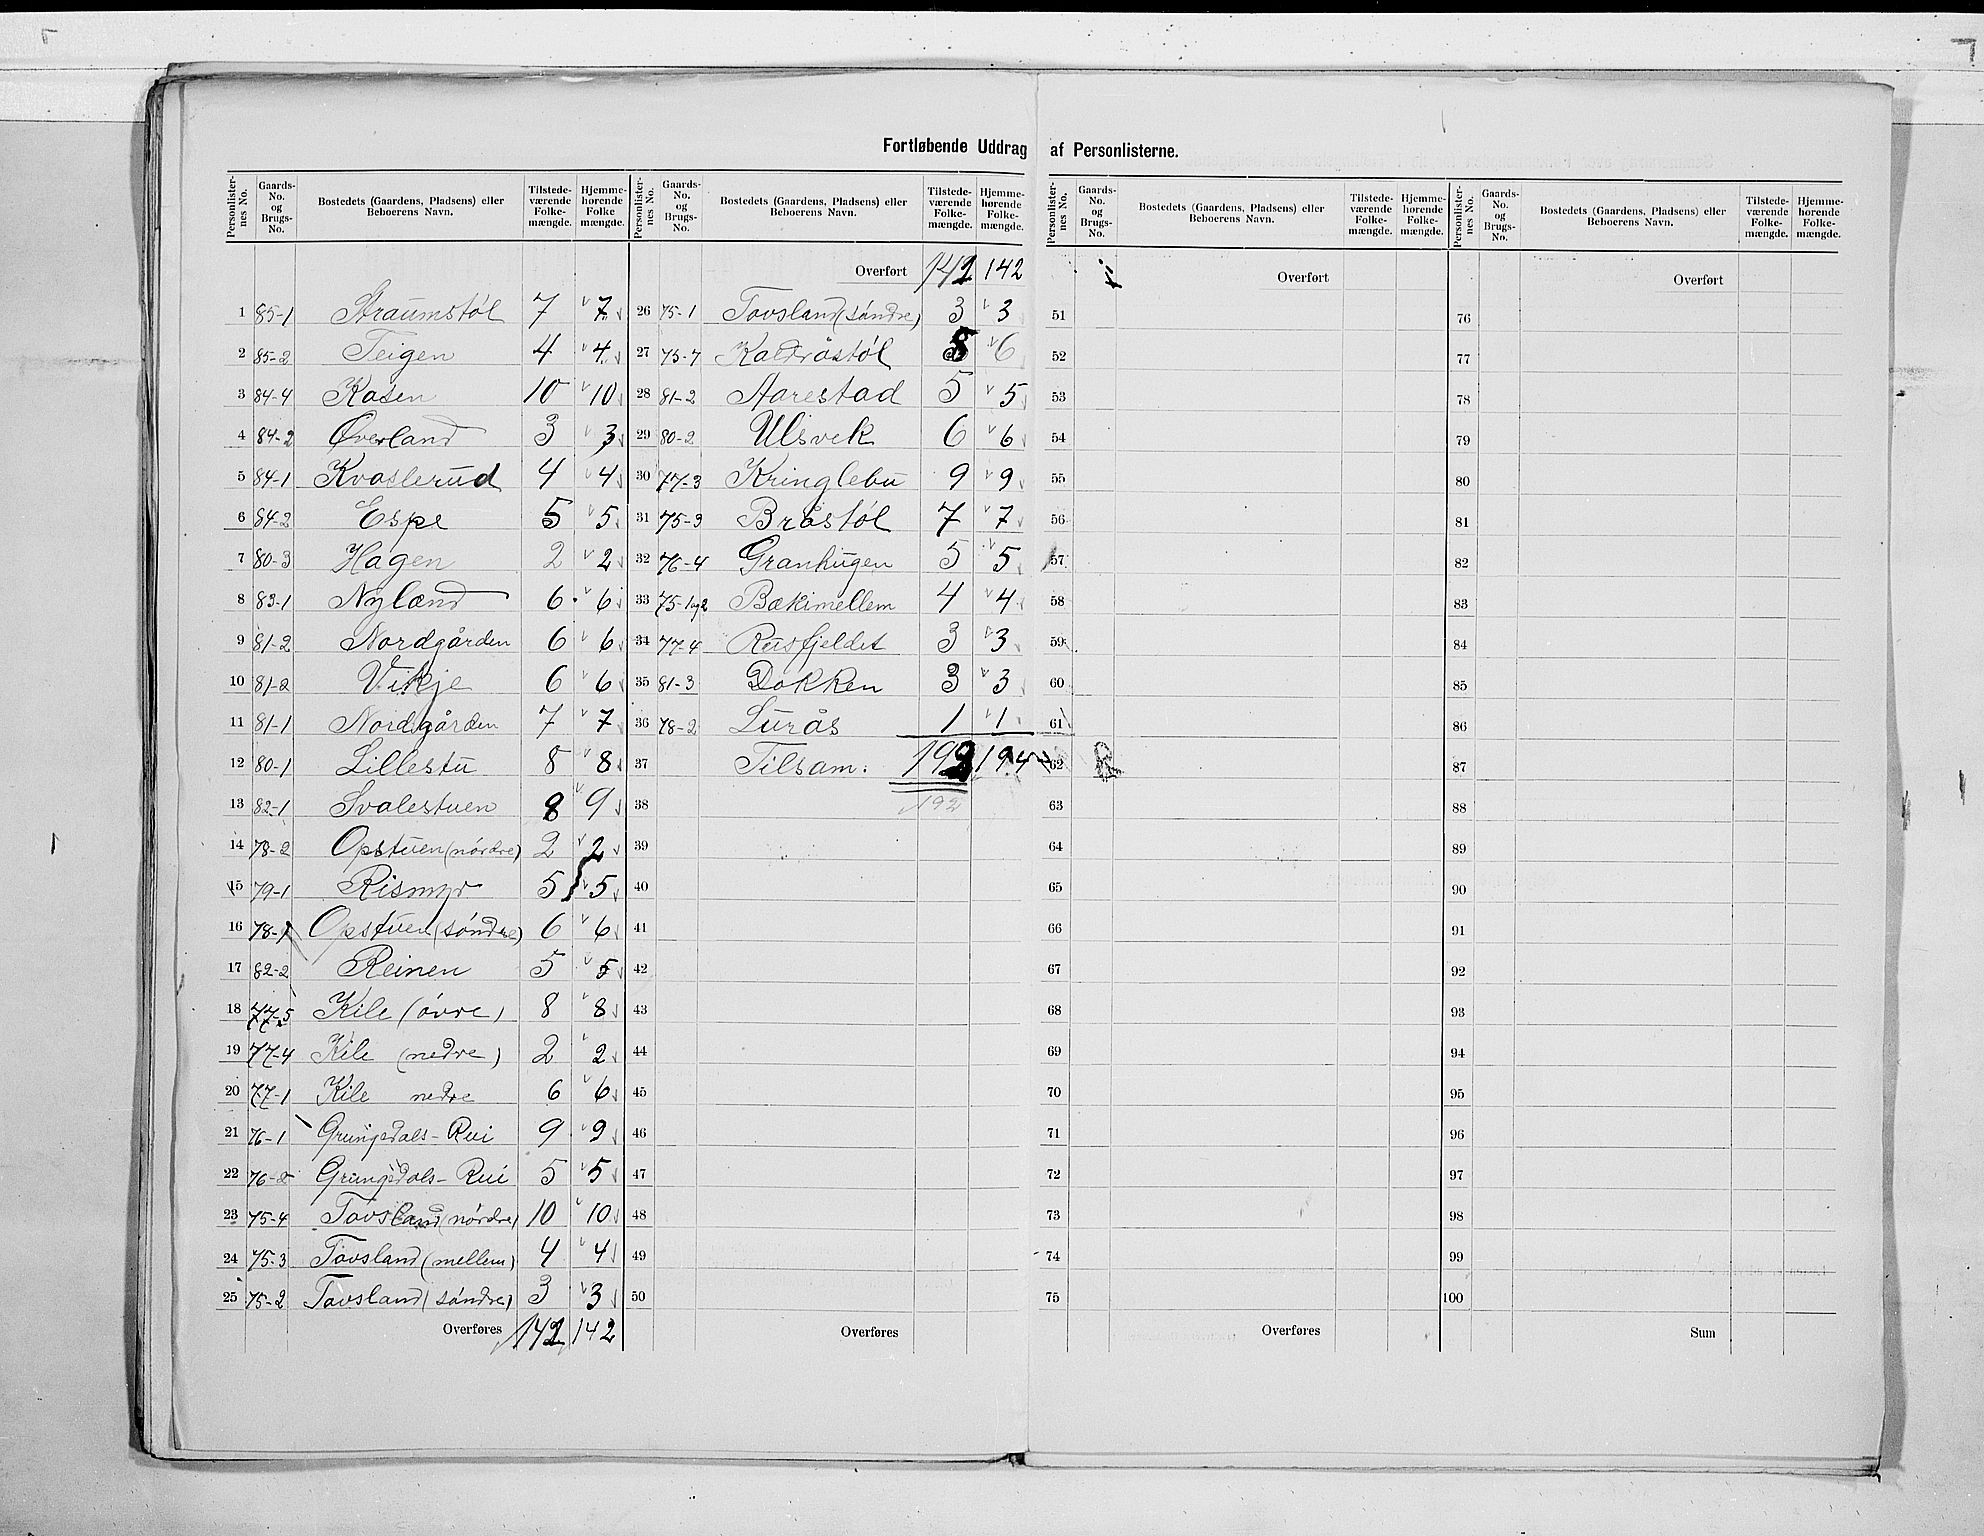 Fortløbende Uddrag af Personlisterne.
Personlister-nes No. Gaards-No. og Brugs-No. Bostedets (Gaardens, Pladsens) eller Beboerens Navn. Tilstede-værende Folke-mængde. Hjemme-hørende Folke mængde.
1 85-1 Straumstøl 7 7
2 85-2 Teigen 4 4
3 84-4 Kasen 10 10
4 84-2 Øverland 3 3
5 84-1 Kvaslerud 4 4
6 84-2 Espe 5 5
7 80-3 Hagen 2 2
8 83-1 Nyland 6 6
9 81-2 Nordgården 6 6
10 81-2 Vikje 6 6
11 81-1 Nordgården 7 7
12 80-1 Lillestu 8 8
13 82-1 Svalestuen 8 9
14 78-2 Opstuen (nórdre) 2 2
15 79-1 Rismyr 5 5
16 78-1 Opstuen (søndre) 6 6
17 82-2 Reinen 5 5
18 77-5 Kile (óvre) 8 8
19 77-4 Kile (nedre) 2 2
20 77-1 Kile nedre 6 6
21 76-1 Grungedals-Rui 9 9
22 76-2 Grungedals-Rui 5 5
23 75-4 Tovsland (nórdre) 10 10
24 75-3 Tovsland (mellem) 4 4
25 75-2 Tovsland (søndre) 3 3
Overføres 142 142
Personlister-nes No. Gaards-No. og Brugs-No. Bostedets (Gaardens, Pladsens) eller Beboerens Navn. Tilstede-værende Folke-mængde. Hjemme-hørende Folke-mængde.
Overført 142 142
26 75-1 Tovsland (søndre) 3 3
27 75-7 Kaldråstøl 6
28 81-2 Aarestad 5 5
29 80-2 Ulsvek 6 6
30 77-3 Kringlebu 9 9
31 75-3 Bråstøl 7 7
32 76-4 Granhugen 5 5
33 75-1og2 Bækimellem 4 4
34 77-4 Rusfjeldet 3 3
35 81-3 Dokken 3 3
36 78-2 Lurås 1 1
37 Tilsam: 192 194
38 192
39
40
41
42
43
44
45
46
47
48
49
50
Overføres
Personlister-nes No. Gaards-No. og Brugs-No. Bostedets (Gaardens, Pladsens) eller Beboerens Navn. Tilstede-værende Folke-mængde. Hjemme-hørende Folke-mængde.
Overført
51
52
53
54
55
56
57
58
59
60
61
62
63
64
65
66
67
68
69
70
71
72
73
74
75
Overføres
Personlister-nes No. Gaards-No. og Brugs-No. Bostedets (Gaardens, Pladsens) eller Beboerens Navn. Tilstede-værende Folke-mængde. Hjemme-hørende Folke-mængde.
Overført
76
77
78
79
80
81
82
83
84
85
86
87
88
89
90
91
92
93
94
95
96
97
98
99
100
Sum